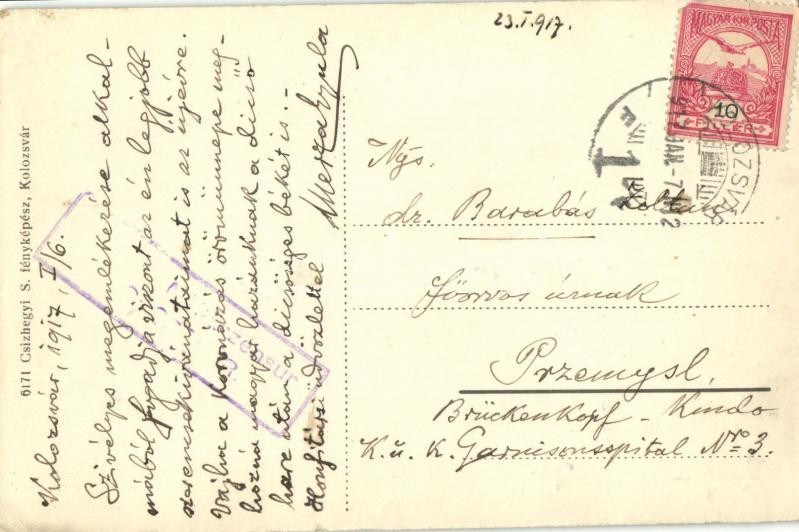 23.I.917.
MAGYAR KIR. POSTA
10
FILLÉR
KOLOZSVÁR
917 JAN. -7
6171 Csizhegyi S. fényképész, Kolozsvár
Kolozsvár, 1917. I/6.
Szivélyes megemlékezése alkal-
mából fogadja viszont az én legjobb
szerencsekivánataimat is az ujévre.
Vajha a koronázás örömünnepe meg-
hozná magyar hazánknak a dicső
harc után a dicsőséges békét is. -
Honfitársi üdvözlettel
Merza Gyula
Ngs.
dr. Barabás Zoltán
főorvos úrnak
Przemysl,
Brückenkopf - Kmdo
K. u. K. Garnisonsspital Nro 3.